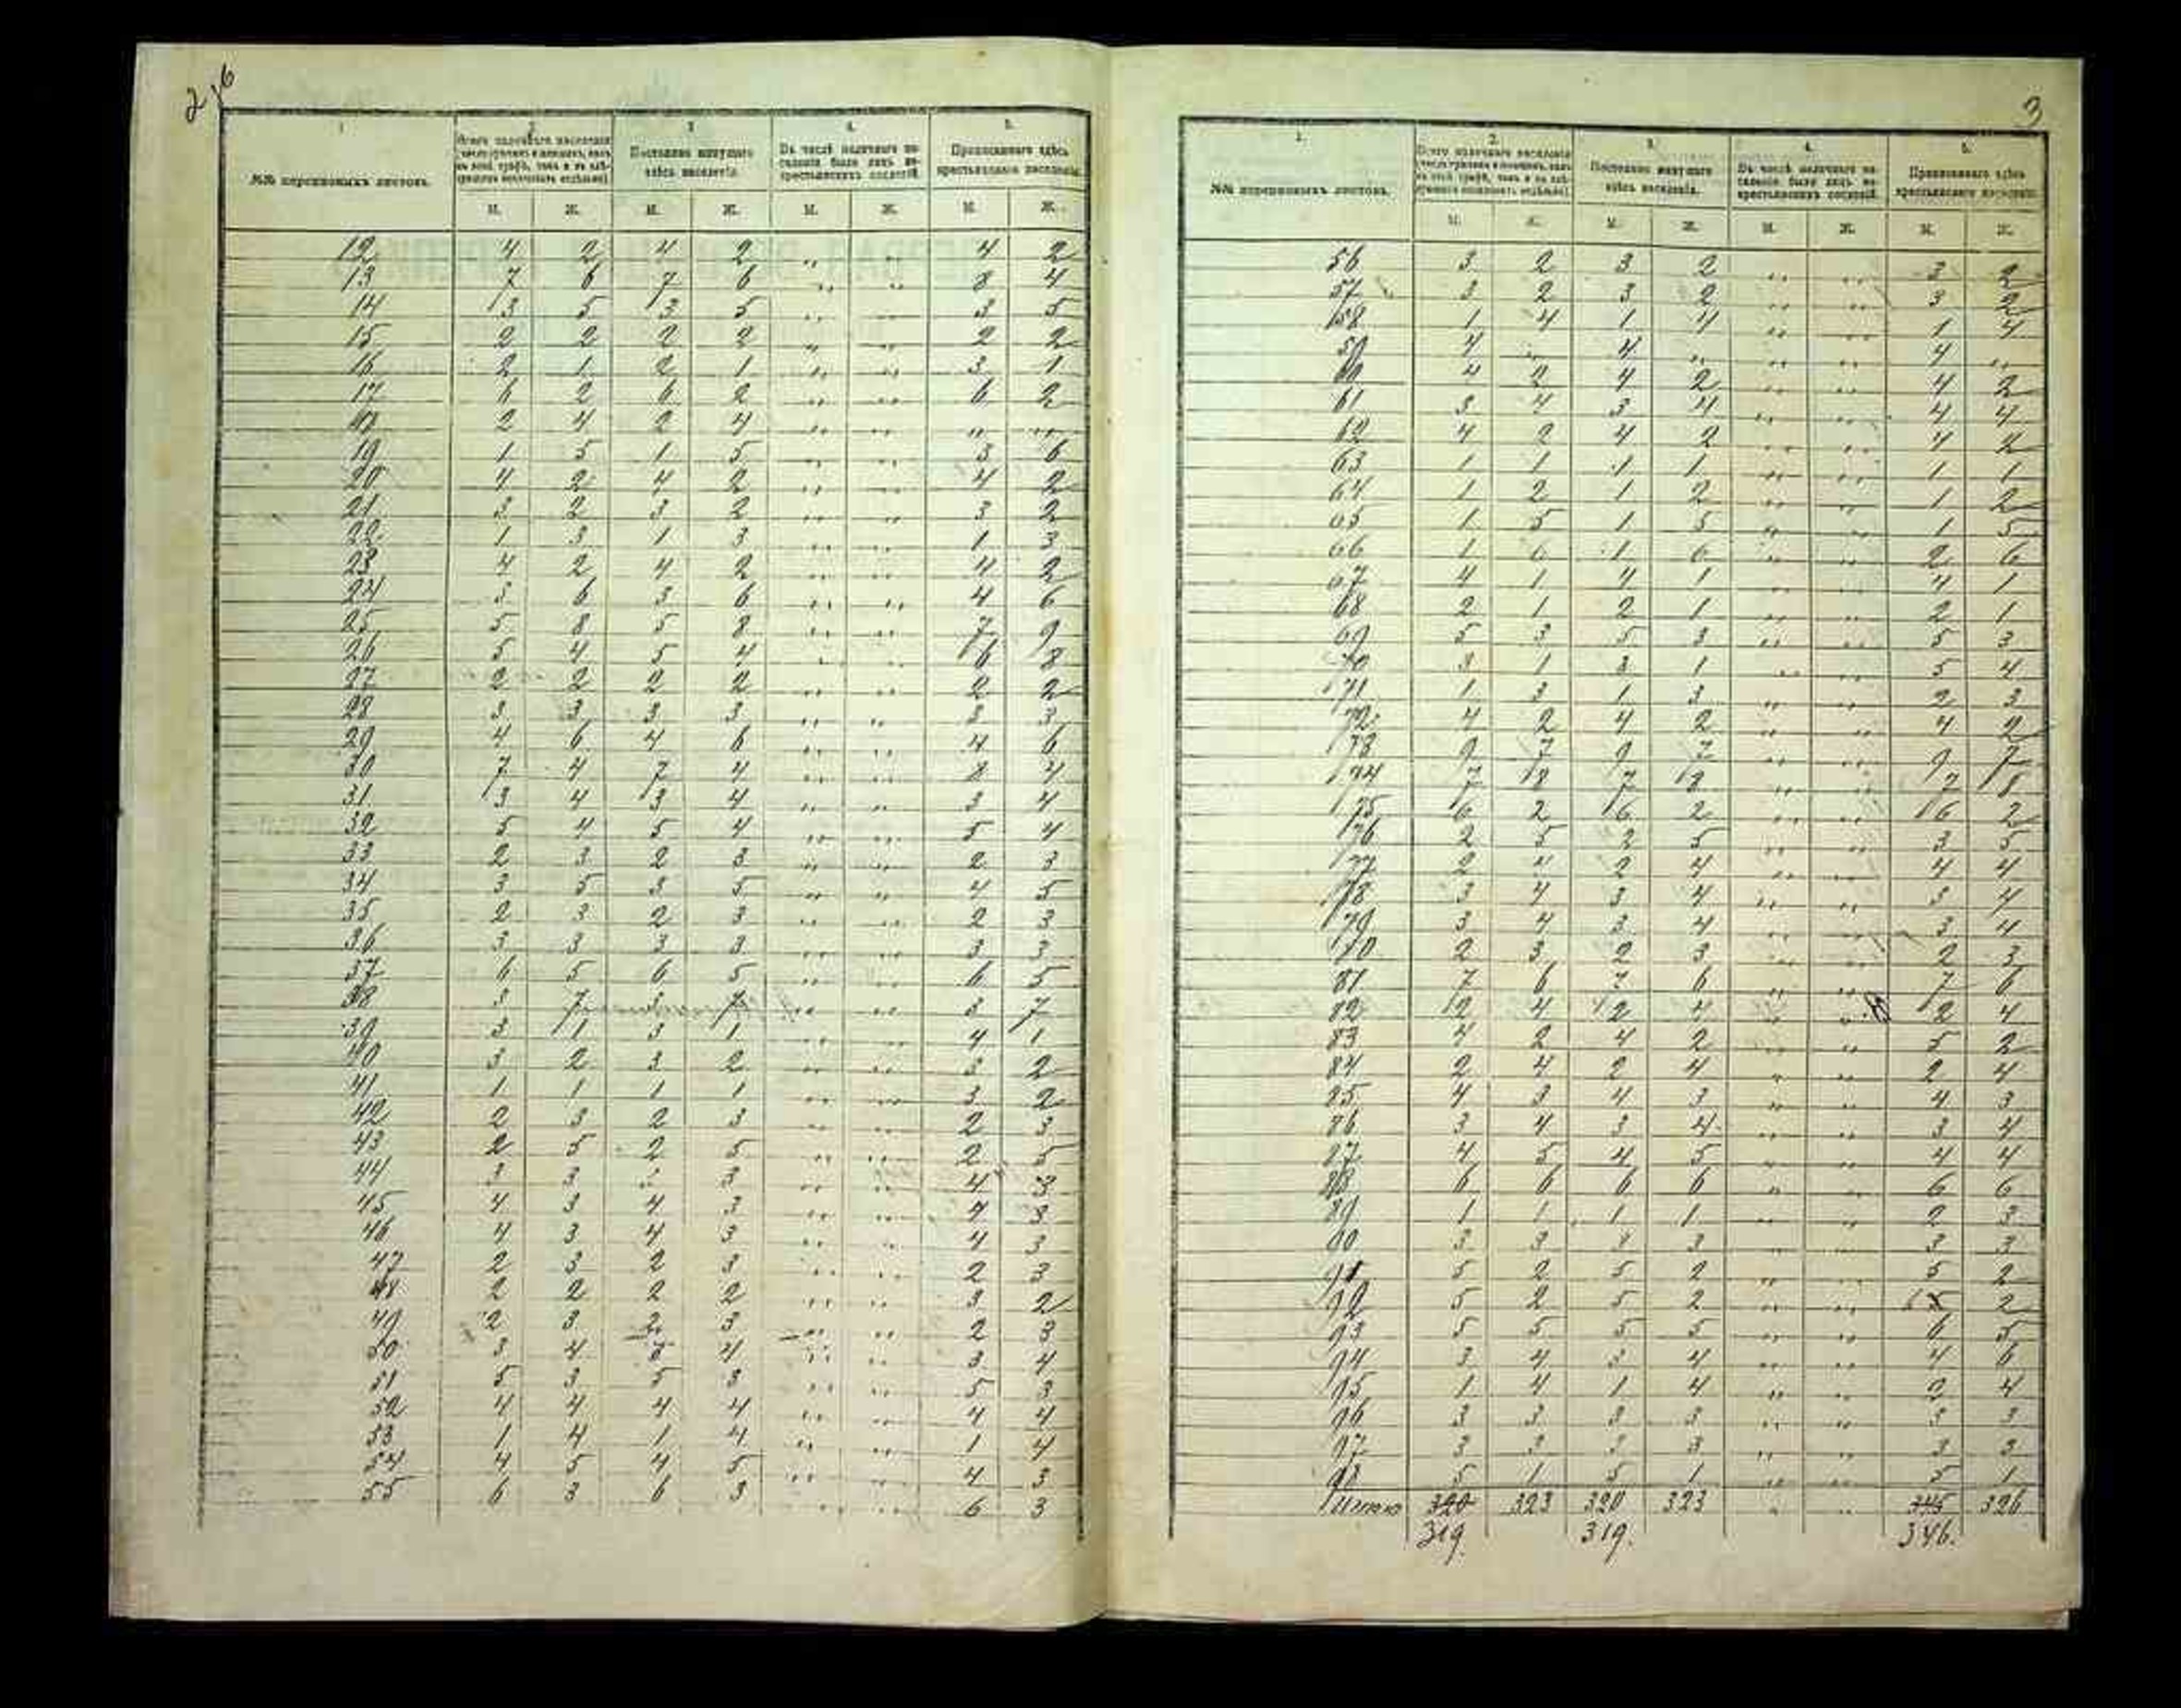 2 б
1 2 3 4. 5.
№№ переписныхъ листовъ. Всего наличнаго населенія (число мужчинъ и женщинъ, какъ въ этой графѣ, такъ и въ слѣдующихъ показывать отдѣльно). Постоянно живущаго здѣсь населенія. Въ числѣ наличнаго населенія было лицъ некрестьянскихъ сословій. Приписаннаго здѣсь крестьянскаго населенія.
М. Ж. М. Ж. М. Ж. М. Ж.
12 4 2 4 2 „ „ 4 2
13 7 6 7 6 „ „ 8 4
14 3 5 3 5 „ „ 3 5
15 2 2 2 2 „ „ 2 2
16 2 1 2 1 „ „ 3 1
17 6 2 6 2 „ „ 6 2
18 2 4 2 4 „ „ „ „
19 1 5 1 5 „ „ 3 6
20 4 2 4 2 „ „ 4 2
21 3 2 3 2 „ „ 3 2
22 1 3 1 3 „ „ 1 3
23 4 2 4 2 „ „ 4 2
24 3 6 3 6 „ „ 4 6
25 5 8 5 8 „ „ 7 9
26 5 4 5 4 „ „ 6 8
27 2 2 2 2 „ „ 2 2
28 3 3 3 3 „ „ 3 3
29 4 6 4 6 „ „ 4 6
30 7 4 7 4 „ „ 8 4
31 3 4 3 4 „ „ 3 4
32 5 4 5 4 „ „ 5 4
33 2 3 2 3 „ „ 2 3
34 3 5 3 5 „ „ 4 5
35 2 3 2 3 „ „ 2 3
36 3 3 3 3 „ „ 3 3
37 6 5 6 5 „ „ 6 5
38 3 7 3 7 „ „ 3 7
39 3 1 3 1 „ „ 4 1
40 3 2 3 2 „ „ 3 2
41 1 1 1 1 „ „ 3 2
42 2 3 2 3 „ „ 2 3
43 2 5 2 5 „ „ 2 5
44 3 3 3 3 „ „ 4 3
45 4 3 4 3 „ „ 4 3
46 4 3 4 3 „ „ 4 3
47 2 3 2 3 „ „ 2 3
48 2 2 2 2 „ „ 3 2
49 2 3 2 3 „ „ 2 3
50 3 4 3 4 „ „ 3 4
51 5 3 5 3 „ „ 5 3
52 4 4 4 4 „ „ 4 4
53 1 4 1 4 „ „ 1 4
54 4 5 4 5 „ „ 4 3
55 6 3 6 3 „ „ 6 3
3
1. 2. 3. 4. 5.
№№ переписныхъ листовъ. Всего наличнаго населенія (число мужчинъ и женщинъ, какъ въ этой графѣ, такъ и въ слѣдующихъ показывать отдѣльно). Постоянно живущаго здѣсь населенія. Въ числѣ наличнаго населенія было лицъ некрестьянскихъ сословій. Приписаннаго здѣсь крестьянскаго населенія.
М. Ж. М. Ж. М. Ж. М. Ж.
56 3 2 3 2 „ „ 3 2
57 3 2 3 2 „ „ 3 2
58 1 4 1 4 „ „ 1 4
59 4 „ 4 „ „ „ 4 „
60 4 2 4 2 „ „ 4 2
61 3 4 3 4 „ „ 4 4
62 4 2 4 2 „ „ 4 2
63 1 1 1 1 „ „ 1 1
64 1 2 1 2 „ „ 1 2
65 1 5 1 5 „ „ 1 5
66 1 6 1 6 „ „ 2 6
67 4 1 4 1 „ „ 4 1
68 2 1 2 1 „ „ 2 1
69 5 3 5 3 „ „ 5 3
70 3 1 3 1 „ „ 5 4
71 1 3 1 3 „ „ 2 3
72 4 2 4 2 „ „ 4 2
73 9 7 9 7 „ „ 9 7
74 7 8 7 8 „ „ 7 8
75 6 2 6 2 „ „ 6 2
76 2 5 2 5 „ „ 3 5
77 2 4 2 4 „ „ 4 4
78 3 4 3 4 „ „ 3 4
79 3 4 3 4 „ „ 3 4
80 2 3 2 3 „ „ 2 3
81 7 6 7 6 „ „ 7 6
82 2 4 2 4 „ „ 2 4
83 4 2 4 2 „ „ 5 2
84 2 4 2 4 „ „ 2 4
85 4 3 4 3 „ „ 4 3
86 3 4 3 4 „ „ 3 4
87 4 5 4 5 „ „ 4 4
88 6 6 6 6 „ „ 6 6
89 1 1 1 1 „ „ 2 3
90 3 3 3 3 „ „ 3 3
91 5 2 5 2 „ „ 5 2
92 5 2 5 2 „ „ 6 2
93 5 5 5 5 „ „ 6 5
94 3 4 3 4 „ „ 4 6
95 1 4 1 4 „ „ 2 4
96 3 3 3 3 „ „ 3 3
97 3 3 3 3 „ „ 3 3
98 5 1 5 1 „ „ 5 1
Итого 320 323 320 323 „ „ 345 326
319. 319. 346.